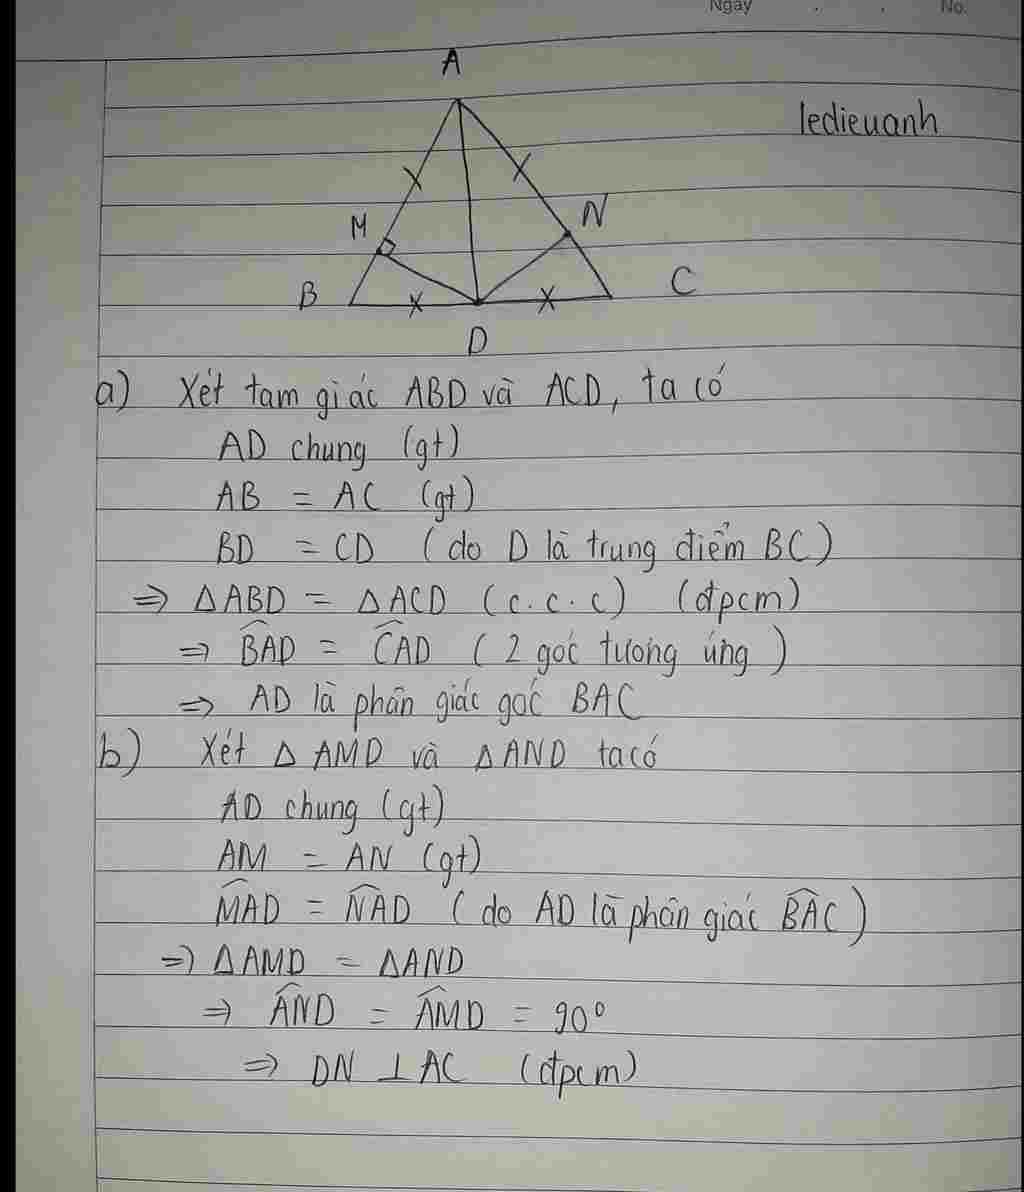 Ngày . . No.
A
ledieuanh
M
N
B
C
D
a) Xét tam giác ABD và ACD, ta có
AD chung (gt)
AB = AC (gt)
BD = CD (do D là trung điểm BC)
⇒ ΔABD = ΔACD (c.c.c) (đpcm)
⇒ \widehat{BAD} = \widehat{CAD} (2 góc tương ứng)
⇒ AD là phân giác góc BAC
b) Xét Δ AMD và Δ AND ta có
AD chung (gt)
AM = AN (gt)
\widehat{MAD} = \widehat{NAD} (do AD là phân giác \widehat{BAC})
⇒ ΔAMD = ΔAND
⇒ \widehat{AND} = \widehat{AMD} = 90°
⇒ DN ⊥ AC (đpcm)